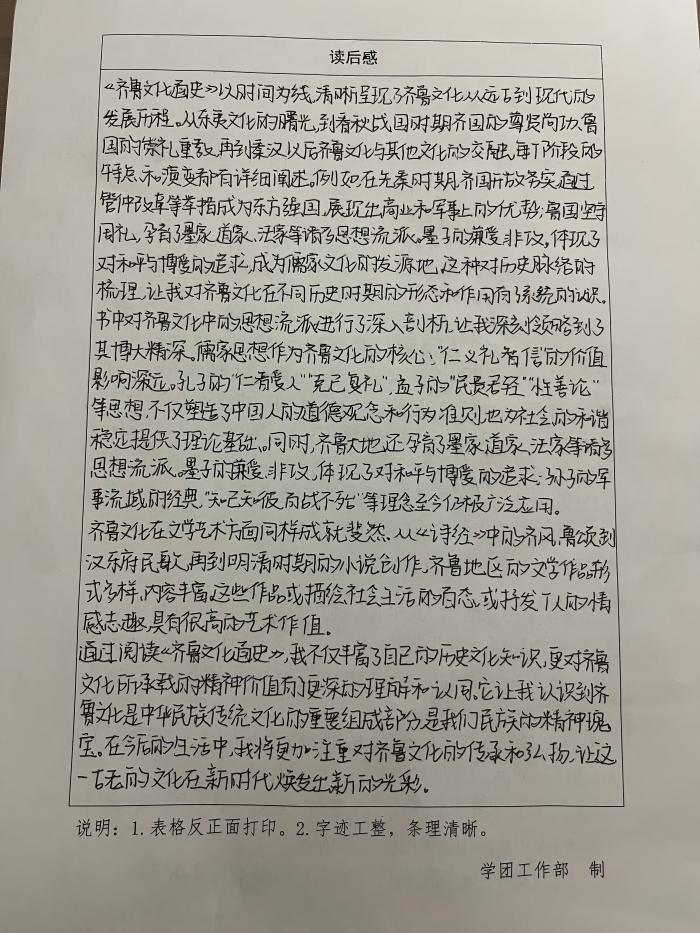 读后感
《齐鲁文化通史》以时间为线,清晰呈现了齐鲁文化从远古到现代的
发展历程。从东夷文化的曙光,到春秋战国时期齐国的尊贤尚功、鲁
国的崇礼重教,再到秦汉以后齐鲁文化与其他文化的交融,每个阶段的
特点和演变都有详细阐述。例如,在先秦时期,齐国开放务实,通过
管仲改革等举措成为东方强国,展现出商业和军事上的优势;鲁国坚守
周礼,孕育了墨家、道家、法家等诸多思想流派。墨子的兼爱、非攻,体现了
对和平与博爱的追求,成为儒家文化的发源地,这种对历史脉络的
梳理,让我对齐鲁文化在不同历史时期的形态和作用有了系统的认识。
书中对齐鲁文化中的思想流派进行了深入剖析,让我深刻领略到了
其博大精深。儒家思想作为齐鲁文化的核心:“仁义礼智信”的价值
影响深远。孔子的“仁者爱人”“克己复礼”,孟子的“民贵君轻”“性善论”
等思想,不仅塑造了中国人的道德观念和行为准则,也为社会的和谐
稳定提供了理论基础。同时,齐鲁大地还孕育了墨家、道家、法家等诸多
思想流派。墨子的兼爱、非攻,体现了对和平与博爱的追求;孙子的军
事流域的经典,“知己知彼,百战不殆”等理念至今仍极广泛应用。
齐鲁文化在文学艺术方面同样成就斐然。从《诗经》中的齐风、鲁颂到
汉乐府民歌,再到明清时期的小说创作,齐鲁地区的文学作品形
式多样,内容丰富,这些作品或描绘社会生活的百态,或抒发个人的情
感志趣,具有很高的艺术作值。
通过阅读《齐鲁文化通史》,我不仅丰富了自己的历史文化知识,更对齐鲁
文化所承载的精神价值有了更深的理解和认同。它让我认识到齐
鲁文化是中华民族传统文化的重要组成部分,是我们民族的精神瑰
宝。在今后的生活中,我将更加注重对齐鲁文化的传承和弘扬,让这
一古老的文化在新时代焕发出新的光彩。
说明:1.表格反正面打印。2.字迹工整,条理清晰。
学团工作部 制